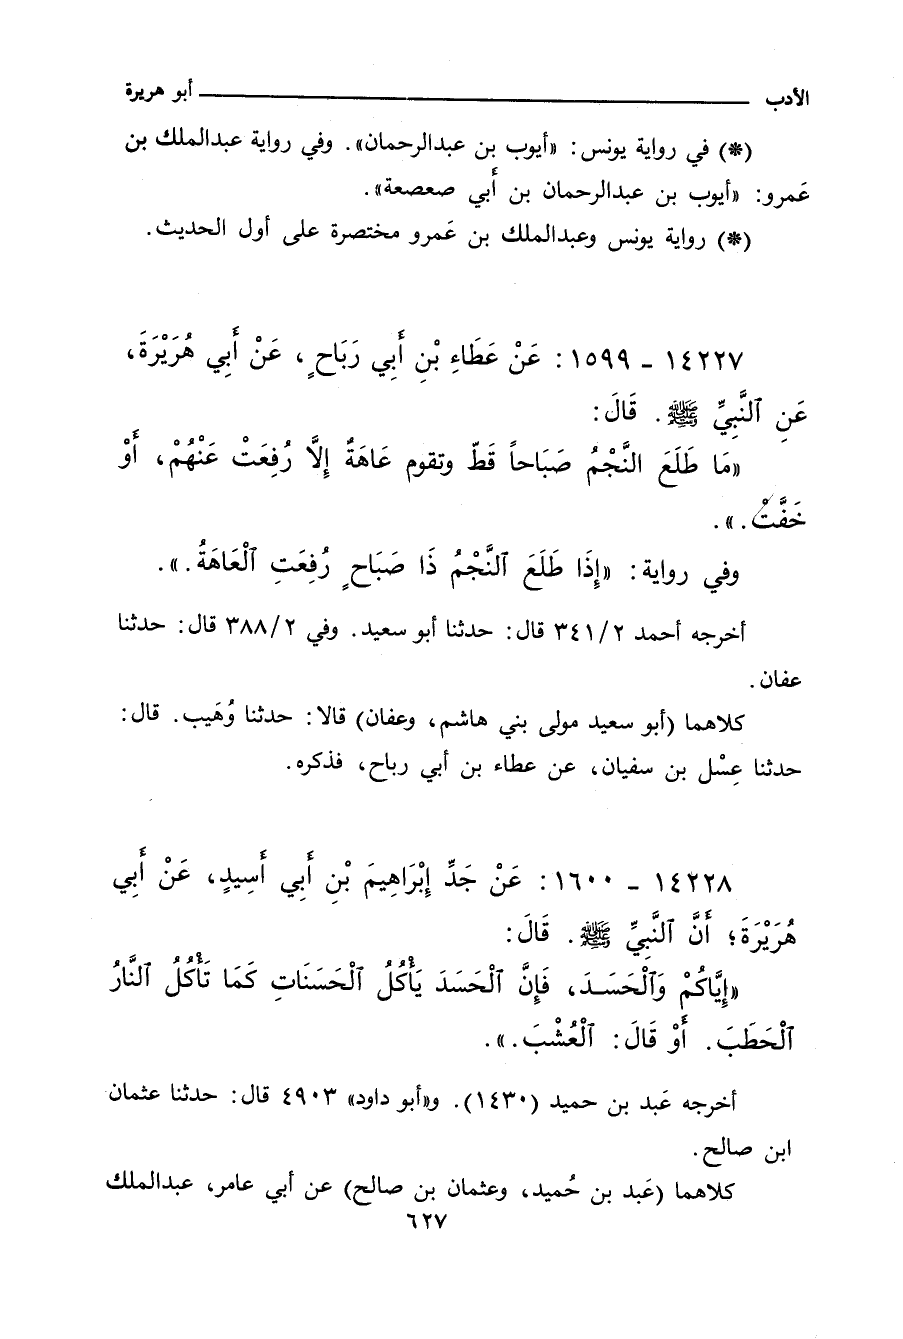 الأدب ــــــــــــــــــــ أبو هريرة
(*) في رواية يونس: «أيوب بن عبدالرحمان». وفي رواية عبدالملك بن
عَمرو: «أيوب بن عبدالرحمان بن أَبي صعصعة».
(*) رواية يونس وعبدالملك بن عَمرو مختصرة على أول الحديث.
١٤٢٢٧ - ١٥٩٩: عَنْ عَطَاءِ بْنِ أَبِي رَبَاحٍ، عَنْ أَبِي هُرَيْرَةَ،
عَنِ ٱلنَّبِيِّ ﷺ. قَالَ:
«مَا طَلَعَ النَّجْمُ صَبَاحاً قَطّ وتقوم عَاهَةٌ إِلَّا رُفِعَتْ عَنْهُمْ، أَوْ
خَفَّتْ.».
وفي رواية: «إِذَا طَلَعَ ٱلنَّجْمُ ذَا صَبَاحٍ رُفِعَتِ ٱلْعَاهَةُ.».
أخرجه أحمد ٣٤١/٢ قال: حدثنا أبو سعيد. وفي ٣٨٨/٢ قال: حدثنا
عفان.
كلاهما (أبو سعيد مولى بني هاشم، وعفان) قالا: حدثنا وُهَيب. قال:
حدثنا عِسْل بن سفيان، عن عطاء بن أبي رباح، فذكره.
١٤٢٢٨ - ١٦٠٠: عَنْ جَدِّ إِبْرَاهِيمَ بْنِ أَبِي أَسِيدٍ، عَنْ أَبِي
هُرَيْرَةَ؛ أَنَّ ٱلنَّبِيِّ ﷺ. قَالَ:
«إِيَّاكُمْ وَٱلْحَسَـدَ، فَإِنَّ ٱلْحَسَدَ يَأْكُلُ ٱلْحَسَنَاتِ كَمَا تَأْكُلُ ٱلنَّارُ
ٱلْحَطَبَ. أَوْ قَالَ: ٱلْعُشْبَ.».
أخرجه عَبد بن حميد (١٤٣٠). و«أبو داود» ٤٩٠٣ قال: حدثنا عثمان
ابن صالح.
كلاهما (عَبد بن حُميد، وعثمان بن صالح) عن أبي عامر، عبدالملك
٦٢٧